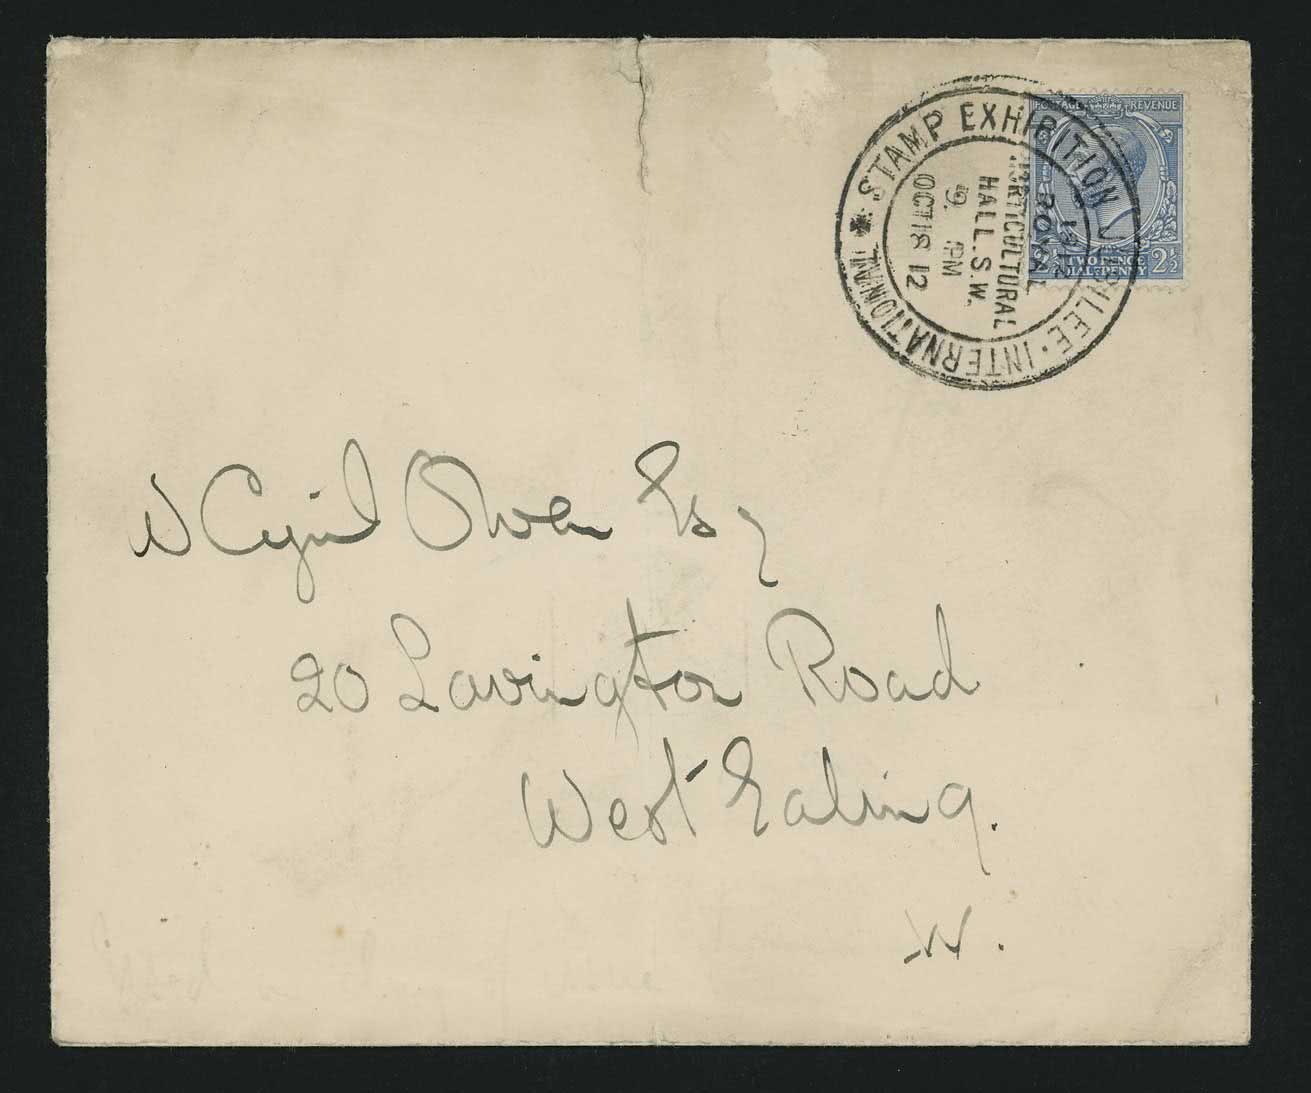 POSTAGE REVENUE
2½ TWO PENCE 2½
HALFPENNY
JUBILEE · INTERNATIONAL * STAMP EXHIBITION
1912
ROYAL
HORTICULTURAL
HALL. S.W.
9. PM
OCT 18 12
W Cyril Owen Esq
20 Lavington Road
West Ealing.
W.